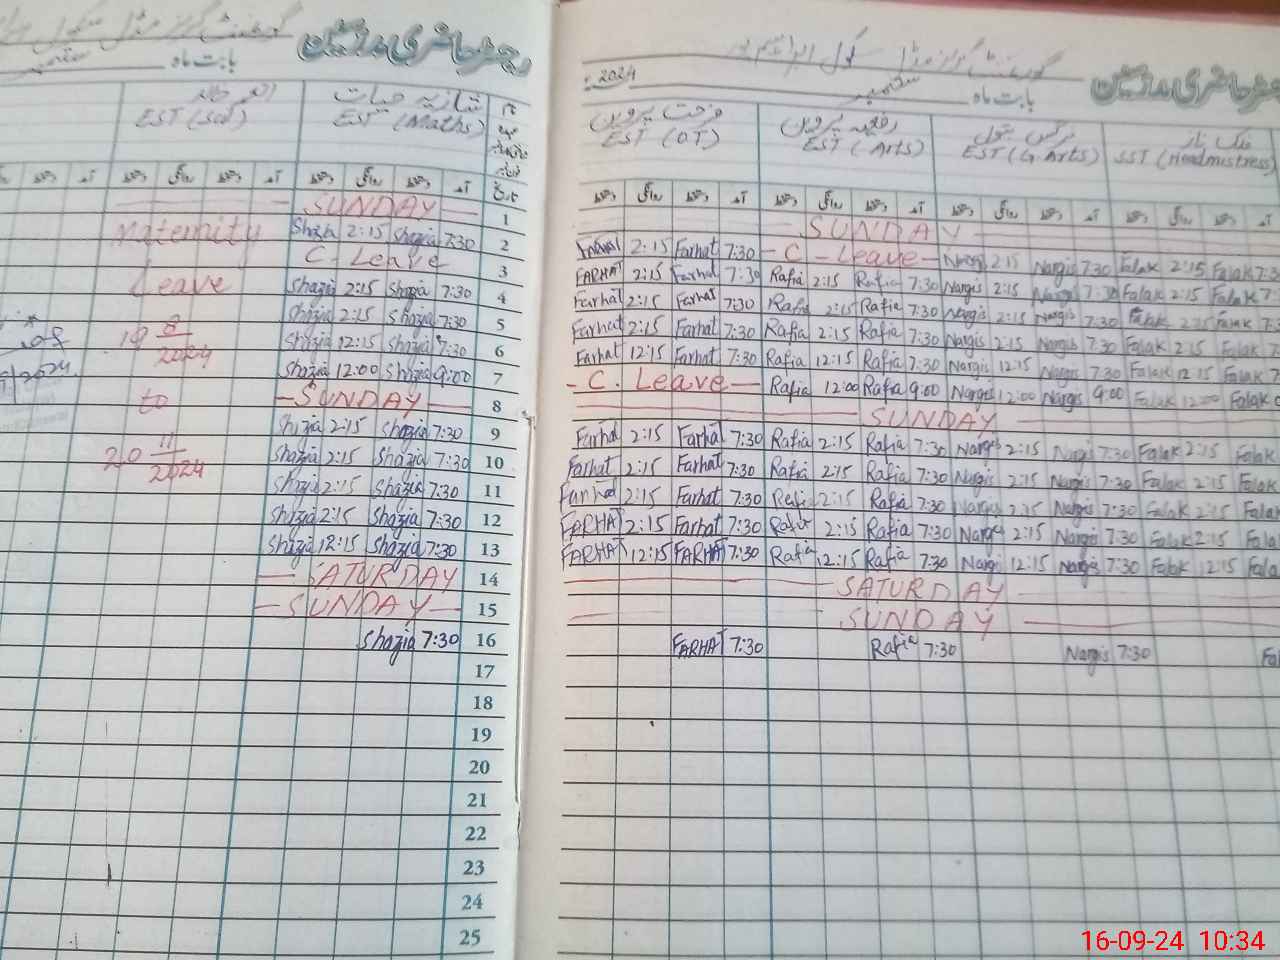 رجسٹر حاضری مدرسین
بابت ماہ ستمبر
شازیہ حیات
EST (Maths)
EST (Sci)
نام
تاریخ
آمد دستخط روانگی دستخط آمد دستخط روانگی دستخط آمد
SUNDAY 1
Maternity Shazia 2:15 Shazia 7:30 2
C. Leave 3
Leave Shazia 2:15 Shazia 7:30 4
Shazia 2:15 Shazia 7:30 5
19 8/2024 Shazia 12:15 Shazia 7:30 6
Shazia 12:00 Shazia 9:00 7
to SUNDAY 8
Shazia 2:15 Shazia 7:30 9
20 11/2024 Shazia 2:15 Shazia 7:30 10
Shazia 2:15 Shazia 7:30 11
Shazia 2:15 Shazia 7:30 12
Shazia 12:15 Shazia 7:30 13
SATURDAY 14
SUNDAY 15
Shazia 7:30 16
17
18
19
20
21
22
23
24
25
رجسٹر حاضری مدرسین
بابت ماہ ستمبر 2024
فلک ناز نرگس بتول رفیعہ پروین فرحت پروین
EST (DT) EST (Arts) EST (G.Arts) SST (Headmistress)
دستخط روانگی دستخط آمد دستخط روانگی دستخط آمد دستخط روانگی دستخط آمد دستخط روانگی دستخط آمد
SUNDAY
2:15 Farhat 7:30 - C - Leave - Nargis 2:15 Nargis 7:30 Falak 2:15 Falak 7:3
FARHAT 2:15 Farhat 7:30 Rafia 2:15 Rafia 7:30 Nargis 2:15 Nargis 7:30 Falak 2:15 Falak 7:
Farhat 2:15 Farhat 7:30 Rafia 2:15 Rafia 7:30 Nargis 2:15 Nargis 7:30 Falak 2:15 Falak 7:
Farhat 2:15 Farhat 7:30 Rafia 2:15 Rafia 7:30 Nargis 2:15 Nargis 7:30 Falak 2:15 Falak 7:
Farhat 12:15 Farhat 7:30 Rafia 12:15 Rafia 7:30 Nargis 12:15 Nargis 7:30 Falak 12:15 Falak 7:
- C. Leave - Rafia 12:00 Rafia 9:00 Nargis 12:00 Nargis 9:00 Falak 12:00 Falak
SUNDAY
Farhat 2:15 Farhat 7:30 Rafia 2:15 Rafia 7:30 Nargis 2:15 Nargis 7:30 Falak 2:15 Falak
Farhat 2:15 Farhat 7:30 Rafia 2:15 Rafia 7:30 Nargis 2:15 Nargis 7:30 Falak 2:15 Falak
Farhat 2:15 Farhat 7:30 Rafia 2:15 Rafia 7:30 Nargis 2:15 Nargis 7:30 Falak 2:15 Falak
FARHAT 2:15 Farhat 7:30 Rafia 2:15 Rafia 7:30 Nargis 2:15 Nargis 7:30 Falak 2:15 Fala
FARHAT 12:15 FARHAT 7:30 Rafia 12:15 Rafia 7:30 Nargis 12:15 Nargis 7:30 Falak 12:15 Fala
SATURDAY
SUNDAY
FARHAT 7:30 Rafia 7:30 Nargis 7:30 Fal
16-09-24 10:34